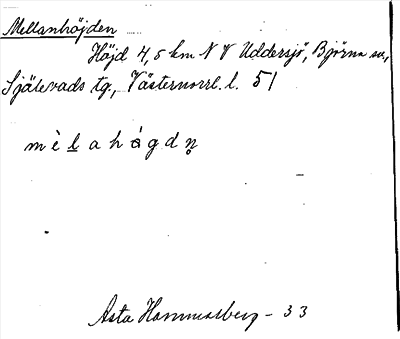 Mellanhöjden
Höjd 4,5 km N V Uddersjö, Björna sn,
Själevads tg., Västernorrl. l. 51
mèlahágdn̥
Asta Hammarberg - 33